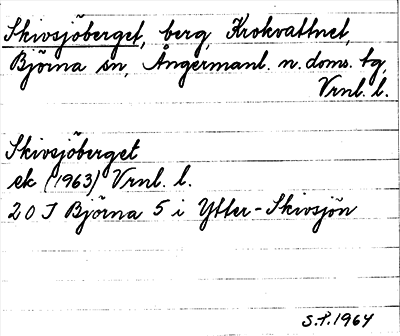 Skivsjöberget, berg, Krokvattnet,
Björna sn, Ångermanl. n. doms. tg,
Vrnl. l.
Skivsjöberget
ek (1963) Vrnl. l.
20 J Björna 5 i Ytter-Skivsjön
S.P. 1964